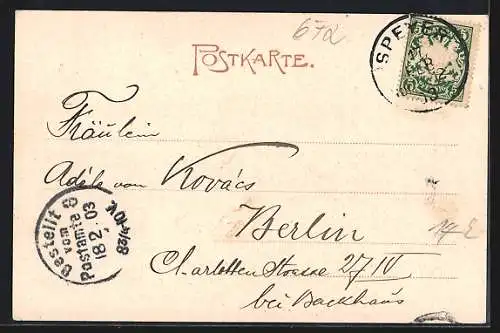 672
POSTKARTE.
SPEYER
18. 2
Fräulein
Adèle von Kovács
Berlin
Charlotten Strasse 27 IV
bei Backhaus
Bestellt
vom
Postamte
18.2.03